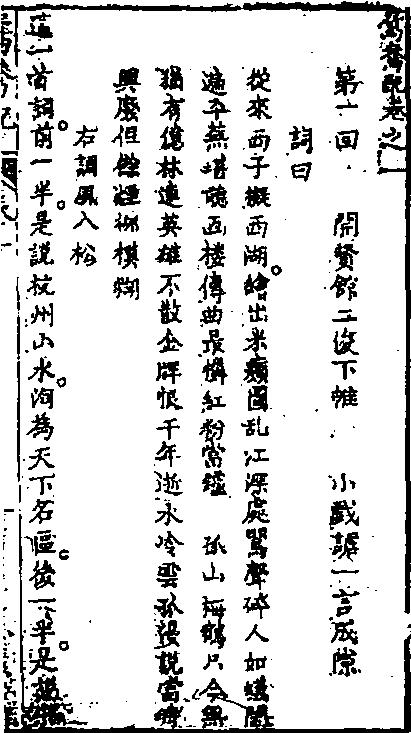 鴛鴦配卷之一
第一回　開賢館二俊下帷　小戲謔一言成隙
詞曰
從來西子擬西湖繪出米顛圖乱江深處鶯聲碎人如蟻鬧
遍平蕪堪聽画楼傳曲最憐紅粉當罏　孤山梅鶴只今無
猶有傍林逋英雄不散金牌恨千年逝水冷雲孤謾說當時
興廢但餘烟柳模糊
右調風入松
這一首詞前一半是說杭州山水洵為天下名區後一半是